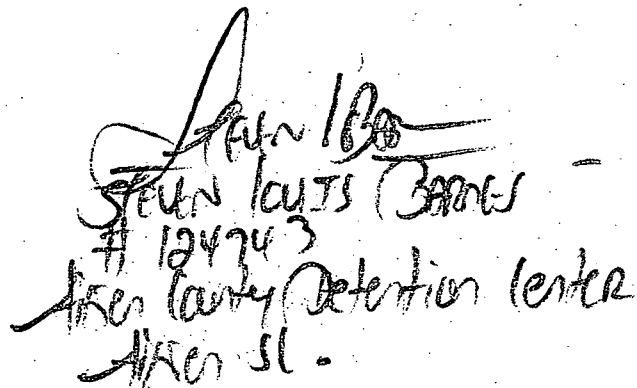 Steven L Bar
STEVEN LOUIS BARNES
# 124743
Aiken County Detention Center
Aiken SC.